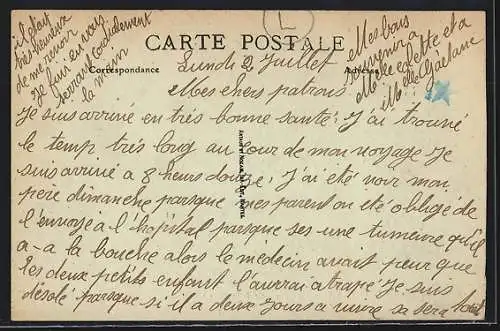 CARTE POSTALE
Correspondance
Adresse
Lundi 2 Juillet
Mes chers patrons
Je suis arrivé en très bonne santé. J'ai trouvé
le temp très long au jour de mon voyage Je
suis arrivé a 8 heurs douze, J'ai été voir mon
père dimanche parsque mes parent on été obligé de
l'envoyé a l'hopital parsque ses une tumeure qu'il
a-a la bouche alors le médecin avait peur que
les deux petits enfant l'aurrai atrapé Je suis
désolé parsque si il a deux jours a vivre sa sera
il etay
très heureux
de me revoir
Je fini en vous
serrant cordialement
la main
Mes bons
souvenir a
Melle colette et a
Melle Gaetane
L